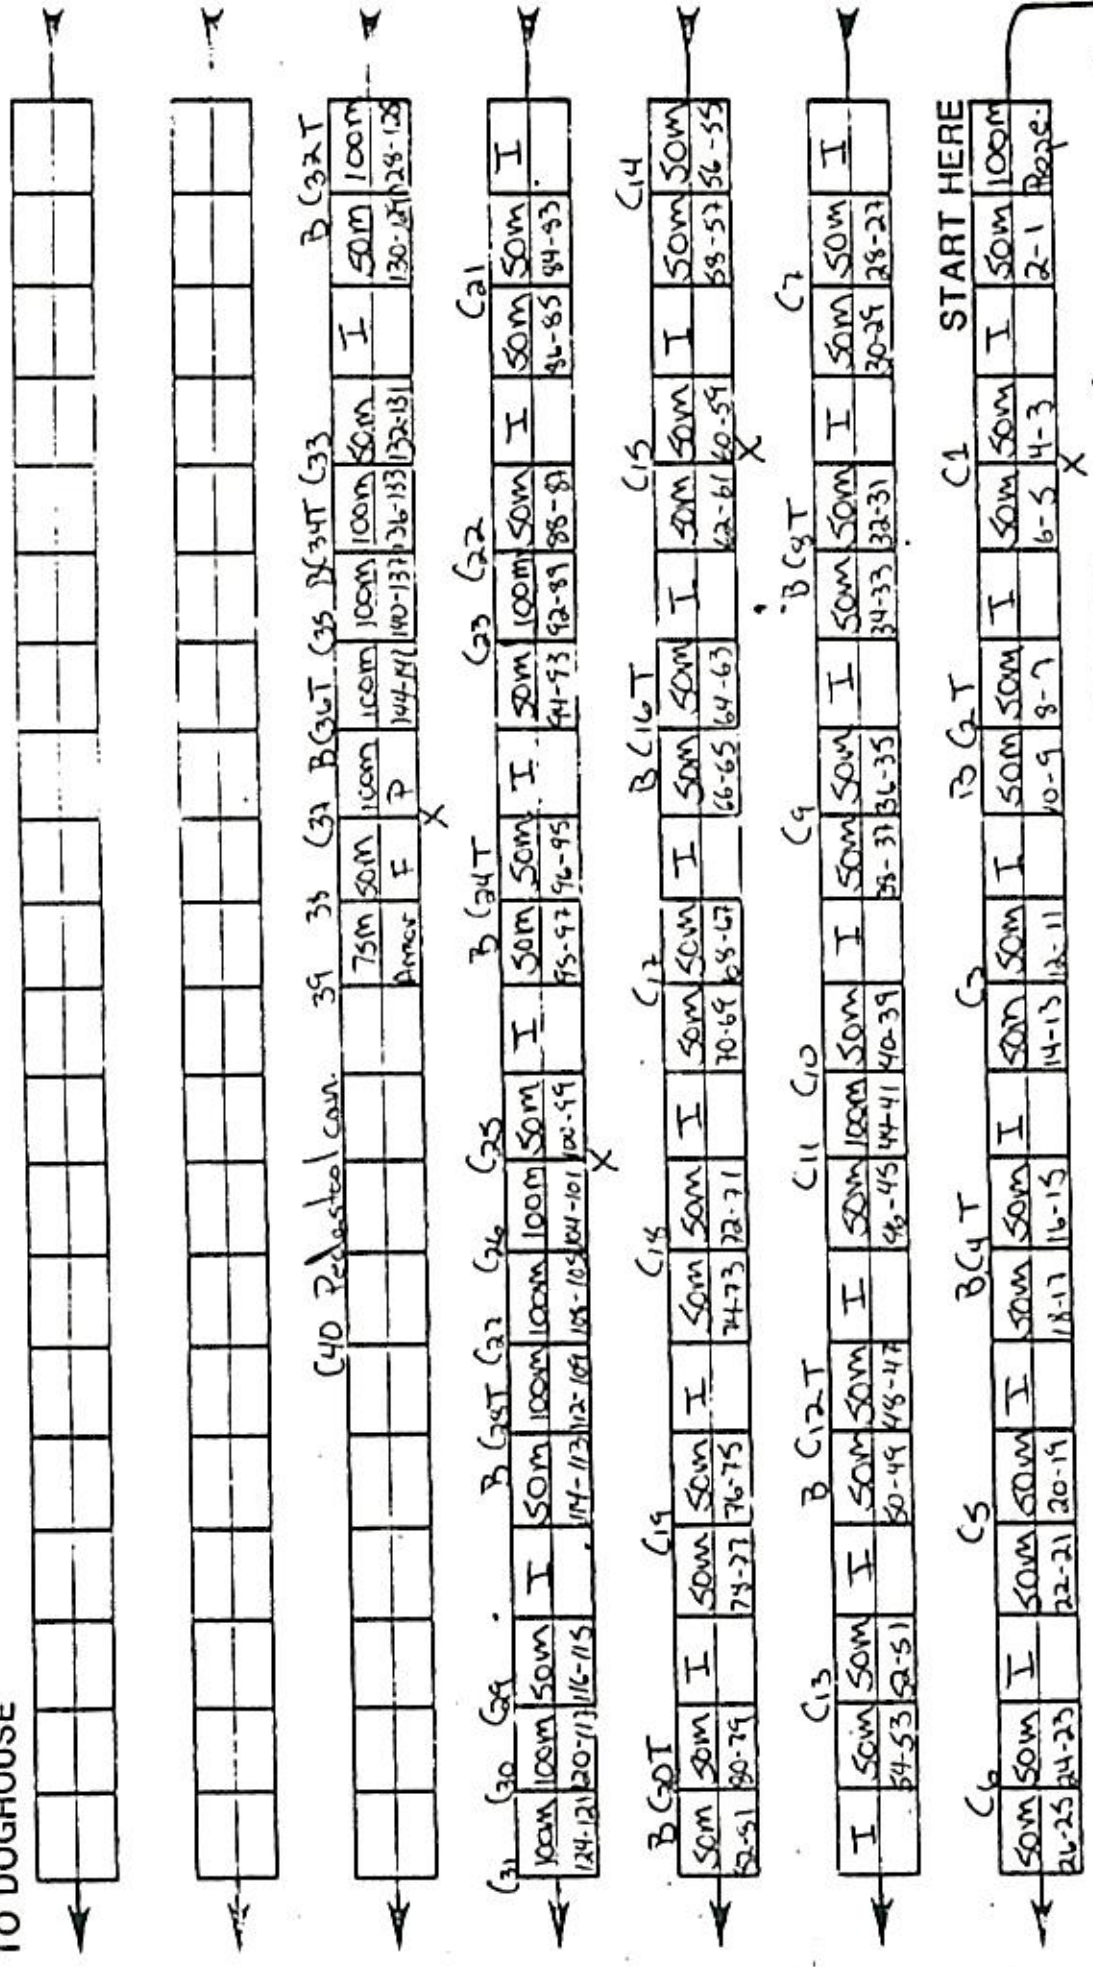 TO DOGHOUSE
C40 Pedestal can. 39 38 C37 B C36T C35 B C34T C33 B C32T
75m 50m 100m 100m 100m 100m 50m I 50m 100m
Armor F P 144-141 140-137 136-133 132-131 130-129 128-125
X
C31 C30 C29 B C28T C27 C26 C25 B C24T C23 C22 C21
100m 100m 50m I 50m 100m 100m 100m 50m I 50m 50m I 50m 100m 50m I 50m 50m I
124-121 120-117 116-115 114-113 112-109 108-105 104-101 100-99 98-97 96-95 94-93 92-89 88-87 86-85 84-83
X
B C20T C19 C18 C17 B C16T C15 C14
50m 50m I 50m 50m I 50m 50m I 50m 50m I 50m 50m I 50m 50m I 50m 50m
82-81 80-79 78-77 76-75 74-73 72-71 70-69 68-67 66-65 64-63 62-61 60-59 58-57 56-55
X
C13 B C12T C11 C10 C9 B C8T C7
I 50m 50m I 50m 50m I 50m 100m 50m I 50m 50m I 50m 50m I 50m 50m I
54-53 52-51 50-49 48-47 46-45 44-41 40-39 38-37 36-35 34-33 32-31 30-29 28-27
C6 C5 B C4 T C3 B C2T C1 START HERE
50m 50m I 50m 50m I 50m 50m I 50m 50m I 50m 50m I 50m 50m I 50m 100m
26-25 24-23 22-21 20-19 18-17 16-15 14-13 12-11 10-9 8-7 6-5 4-3 2-1 Rope.
X